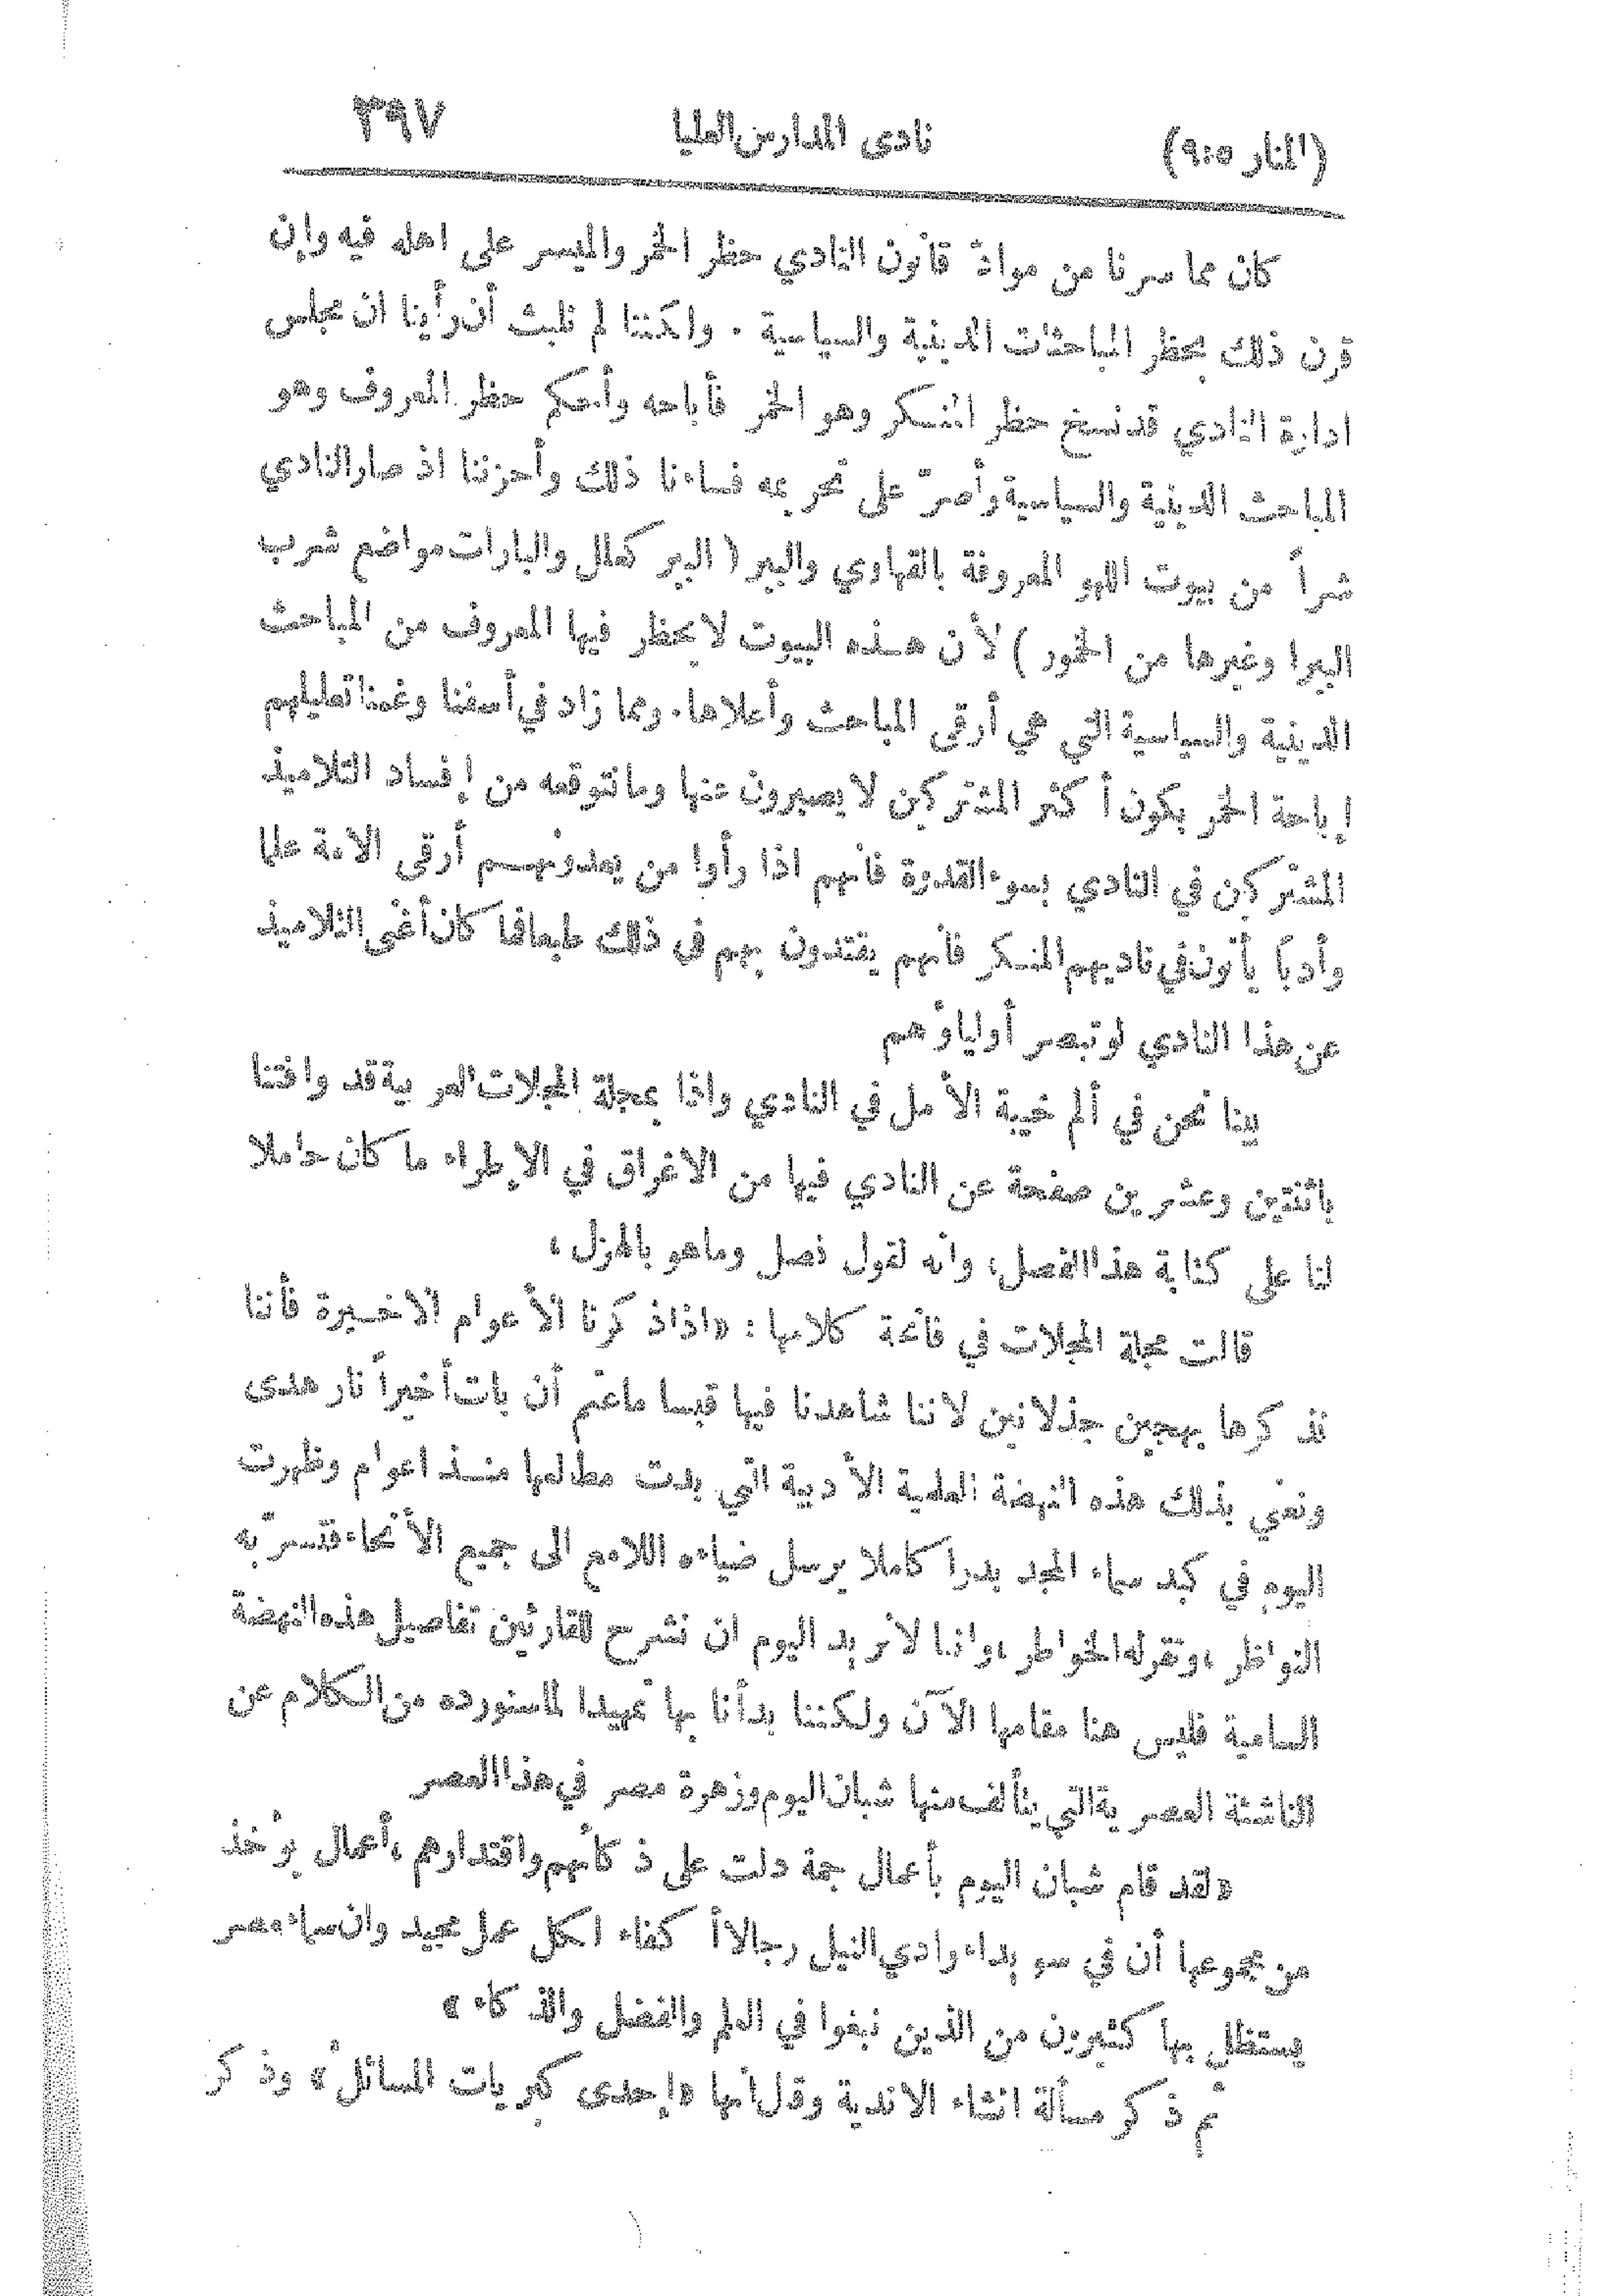 (المنار ٥:٩) نادى المدارس العليا ٣٩٧
كان مما سرنا من موادّ قانون النادي حظر الخمر والميسر على اهله فيه وإن
قرن ذلك بحظر المباحثات الدينية والسياسية . ولكننا لم نلبث أن رأينا ان مجلس
ادارة النادي قد نسخ حظر المنكر وهو الخمر فأباحه وأحكم حظر المعروف وهو
المباحث الدينية والسياسية وأصرّ على تحريمه فساءنا ذلك وأحزننا اذ صار النادي
شراً من بيوت اللهو المعروفة بالقهاوي والبير ( البير كمال والبارات مواضع شرب
البيرا وغيرها من الخمور ) لأن هذه البيوت لا يحظر فيها المعروف من المباحث
الدينية والسياسية التي هي أرقى المباحث وأعلاها. ومما زاد في أسفنا وغمنا تعليلهم
إباحة الخمر بكون أكثر المشتركين لا يصبرون عنها وما نتوقعه من إفساد التلاميذ
المشتركين في النادي بسوء القدوة فأنهم اذا رأوا من يعدونهم أرقى الامة علما
وأدباً يأتون في ناديهم المنكر فأنهم يقتدون بهم في ذلك طبعا فما كان أغنى التلاميذ
عن هذا النادي لو تبصر أولياؤهم
بينا نحن في ألم خيبة الأمل في النادي واذا بمجلة المجلات العربية قد وافتنا
باثنتين وعشرين صفحة عن النادي فيها من الاغراق في الإطراء ما كان حاملا
لنا على كتابة هذا الفصل، وانه لقول فصل وما هو بالهزل ،
قالت مجلة المجلات في فاتحة كلامها : «اذا ذكرنا الأعوام الاخيرة فأننا
نذكرها بهجين جذلانين لاننا شاهدنا فيها قبسا ما عتم أن بات أخيراً نار هدى
ونعني بذلك هذه النهضة العلمية الأدبية التي بدت مطالعها منذ اعوام وظهرت
اليوم في كبد سماء المجد بدرا كاملا يرسل ضياءه اللامع الى جميع الأنحاء فتسرّ به
النواظر ،وتقر له الخواطر ،واننا لا نريد اليوم ان نشرح للقارئين تفاصيل هذه النهضة
السامية فليس هنا مقامها الآن ولكننا بدأنا بها تمهيدا لما سنورده من الكلام عن
الناشئة المصرية التي يتألف منها شبان اليوم وزهرة مصر في هذا العصر
«لقد قام شبان اليوم بأعمال جمة دلت على ذكائهم واقتدارهم ،أعمال يؤخذ
من مجموعها أن في سويداء وادي النيل رجالا أكفاء لكل عمل مجيد وان سماء مصر
يستظل بها كثيرون من الذين نبغوا في العلم والفضل والذكاء »
ثم ذكر مسألة انشاء الاندية وقال أنها «إحدى كبريات المسائل» وذكر